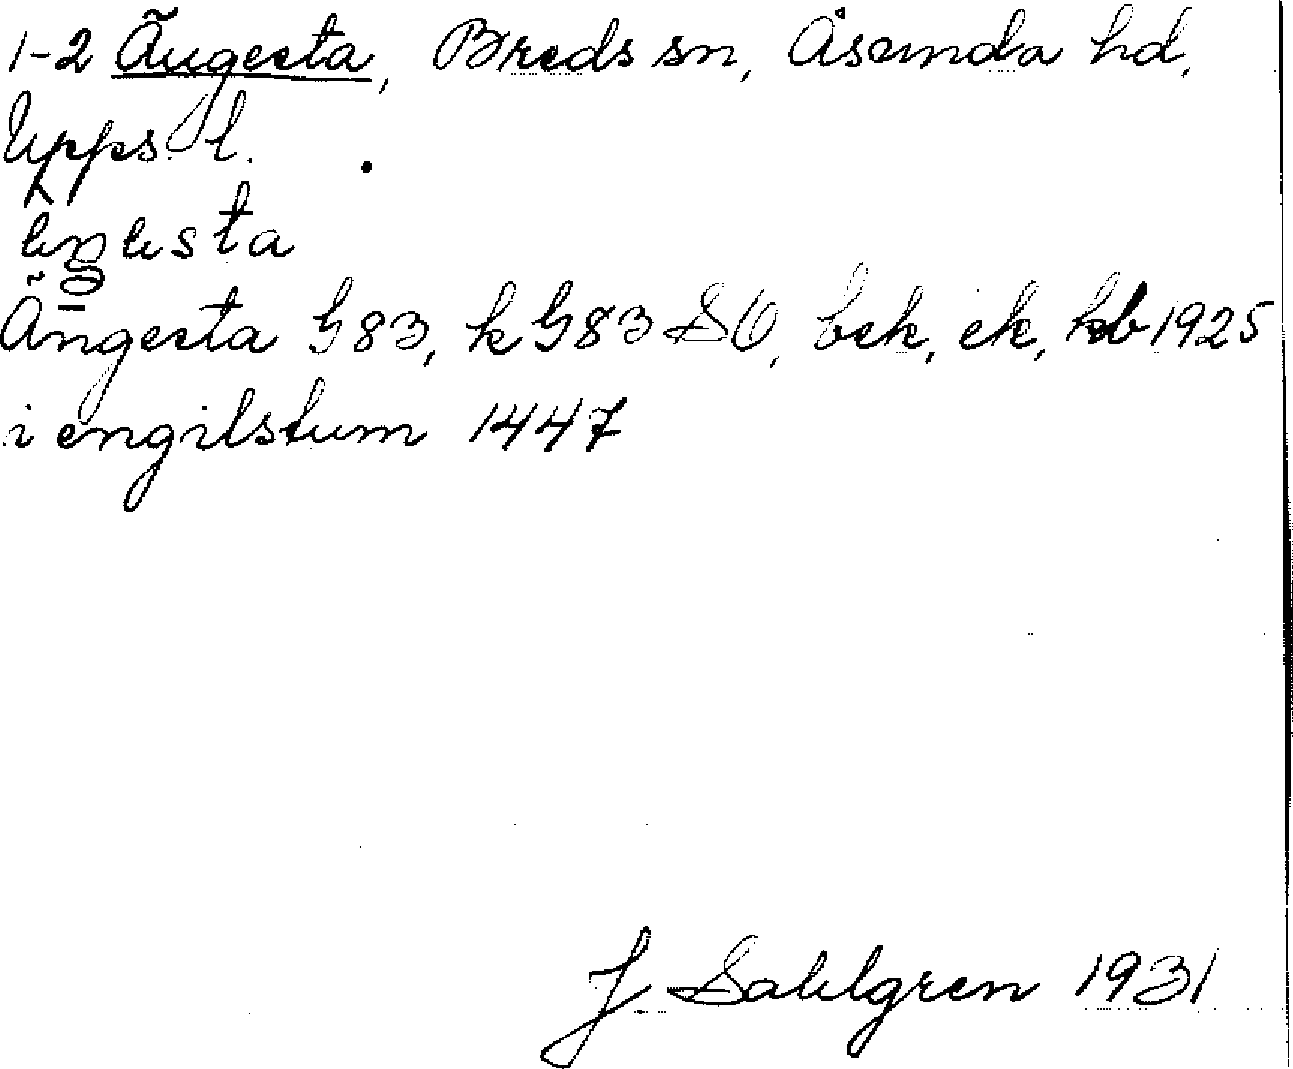 1-2 Ängesta, Breds sn, Åsunda hd,
Upps. l.
Ängesta G83, k G83 SO, bek, ek, hb 1925
i engilstum 1447
J Sahlgren 1931